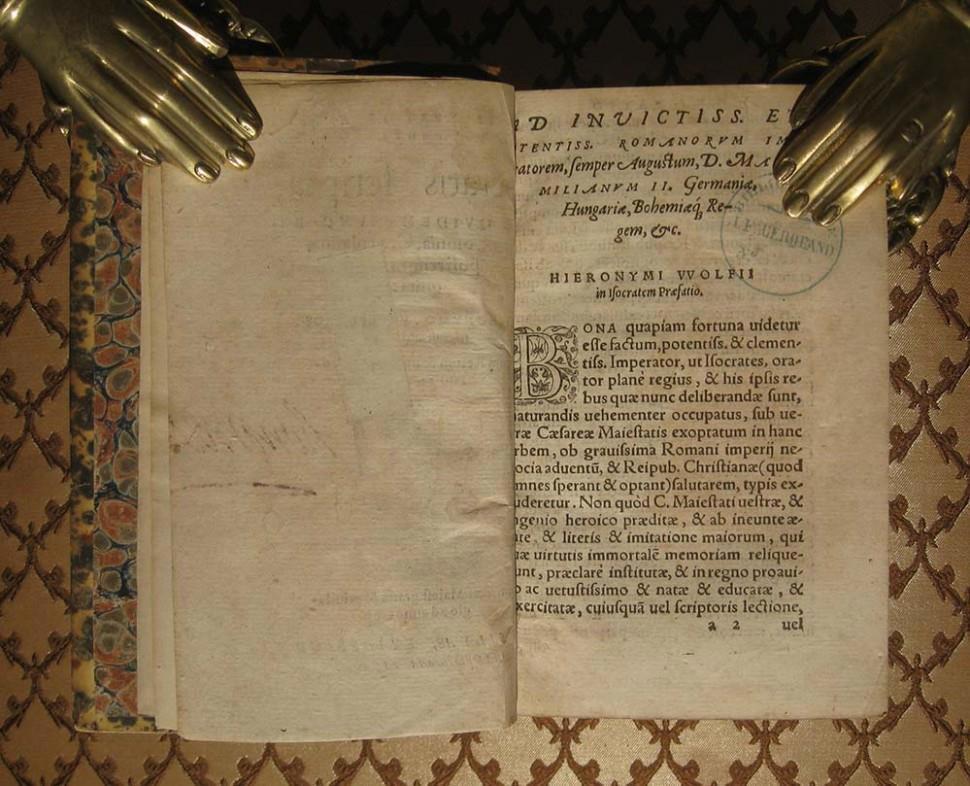 D INVICTISS. E
TENTISS. ROMANORVM IM
atorem, semper Augustum, D. MA
MILIANVM II. Germaniæ,
Hungariæ, Bohemiæq́; Re-
gem, &c.
HIERONYMI VVOLFII
in Isocratem Præfatio.
BONA quapiam fortuna uidetur
esse factum, potentiss. & clemen-
tiss. Imperator, ut Isocrates, ora-
tor planè regius, & his ipsis re-
bus quæ nunc deliberandæ sunt,
aturandis uehementer occupatus, sub ue-
ræ Cæsareæ Maiestatis exoptatum in hanc
rbem, ob grauissima Romani imperij ne-
ocia aduentū, & Reipub. Christianæ (quod
mnes sperant & optant) salutarem, typis ex-
uderetur. Non quòd C. Maiestati uestræ, &
ngenio heroico præditæ, & ab ineunte æ-
te, & literis & imitatione maiorum, qui
uæ uirtutis immortalē memoriam relique-
unt, præclarè institutæ, & in regno proaui-
o ac uetustissimo & natæ & educatæ, &
xercitatæ, cuiusquã uel scriptoris lectione,
a 2 uel